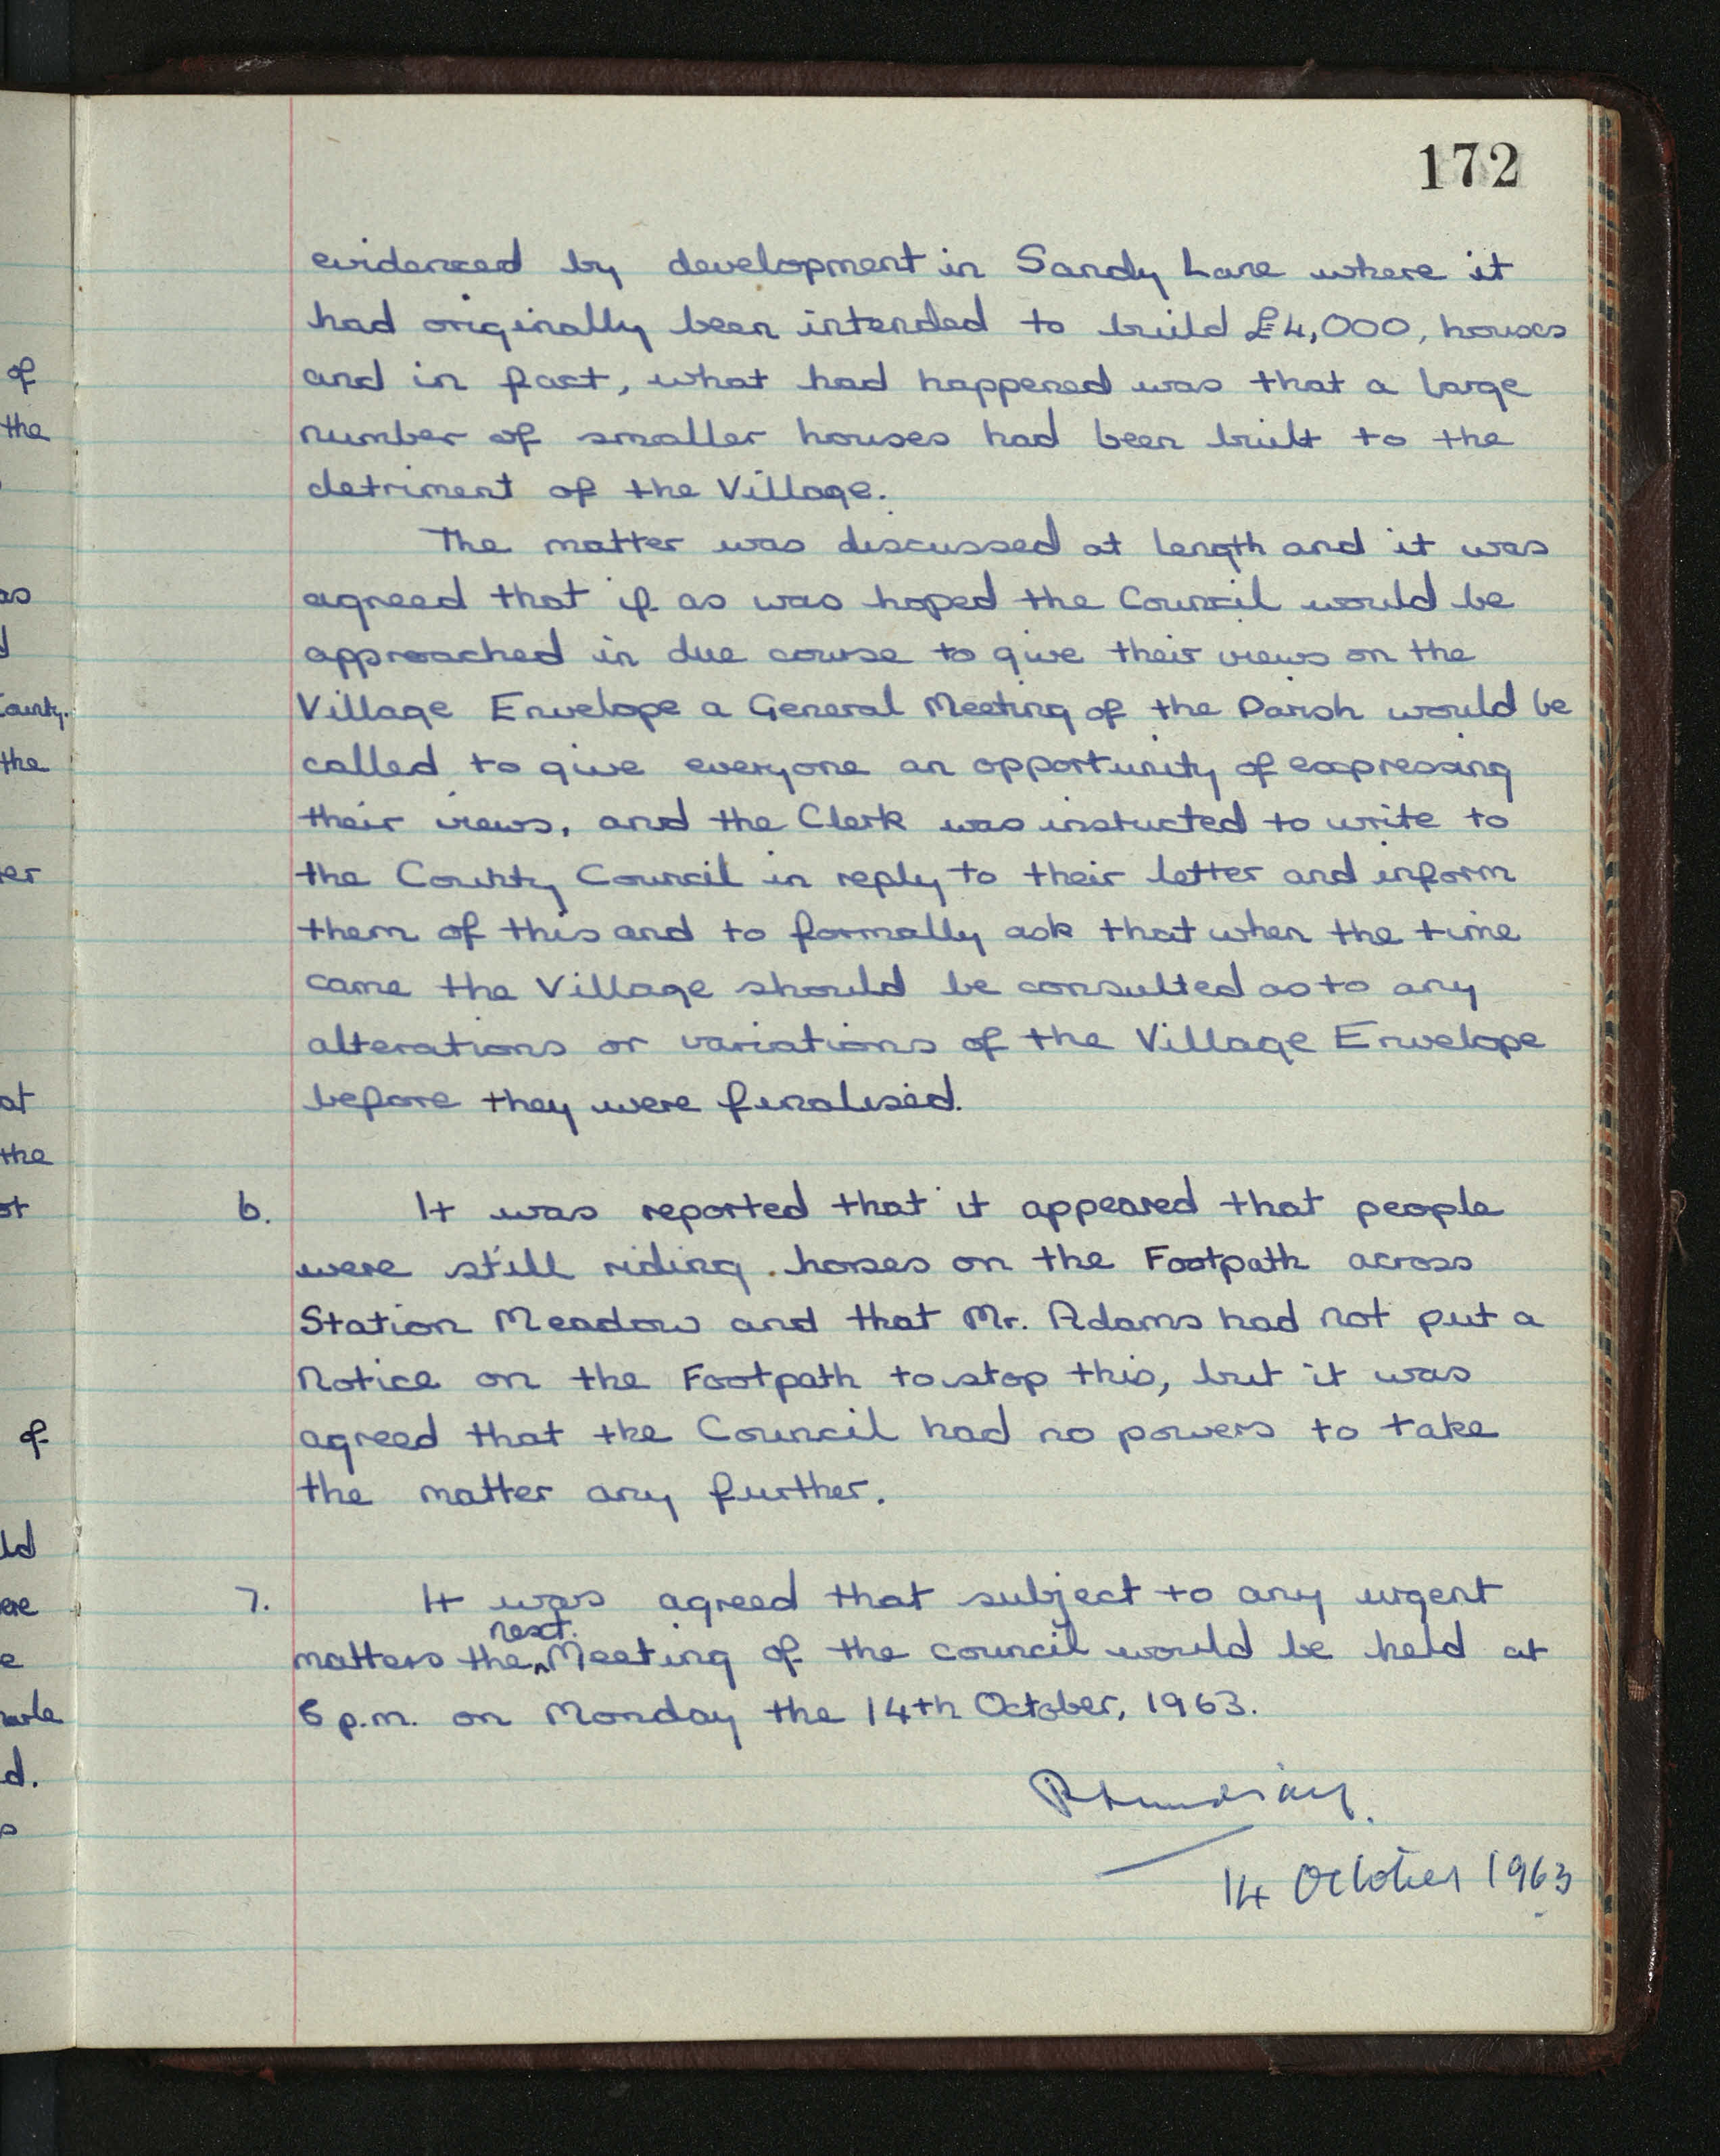 172
evidenced by development in Sandy Lane where it
had originally been intended to build £4,000, houses
and in fact, what had happened was that a large
number of smaller houses had been built to the
detriment of the Village.
The matter was discussed at length and it was
agreed that if as was hoped the Council would be
approached in due course to give their views on the
Village Envelope a General Meeting of the Parish would be
called to give everyone an opportunity of expressing
their views, and the Clerk was instucted to write to
the County Council in reply to their letter and inform
them of this and to formally ask that when the time
came the Village should be consulted as to any
alterations or variations of the Village Envelope
before they were finalised.
6. It was reported that it appeared that people
were still riding horses on the Footpath across
Station Meadow and that Mr. Adams had not put a
Notice on the Footpath to stop this, but it was
agreed that the Council had no powers to take
the matter any further.
7. It was agreed that subject to any urgent
matters the next Meeting of the council would be held at
6 p.m. on Monday the 14th October, 1963.
14 October 1963
of
the
as
County.
the
er
at
the
ot
of
ld
ere
e
d.